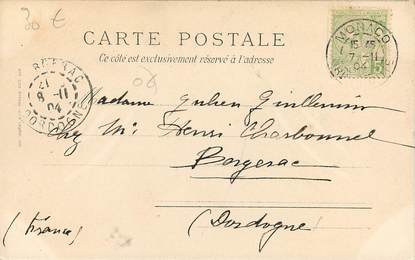 30 €
CARTE POSTALE
Ce côté est exclusivement réservé à l'adresse
MONACO
15 45
7 - 11
04
5
BERGERAC
8 - 11
04
DORDOGNE
Madame Julien Guillemin
Chez Mr Henri Charbonnel
Bergerac
(Dordogne)
(France)